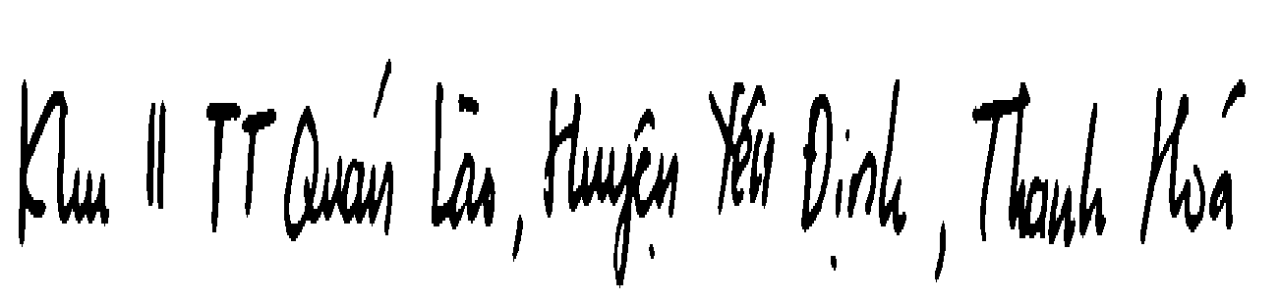 Khu II TT Quán Lào, Huyện Yên Định, Thanh Hoá